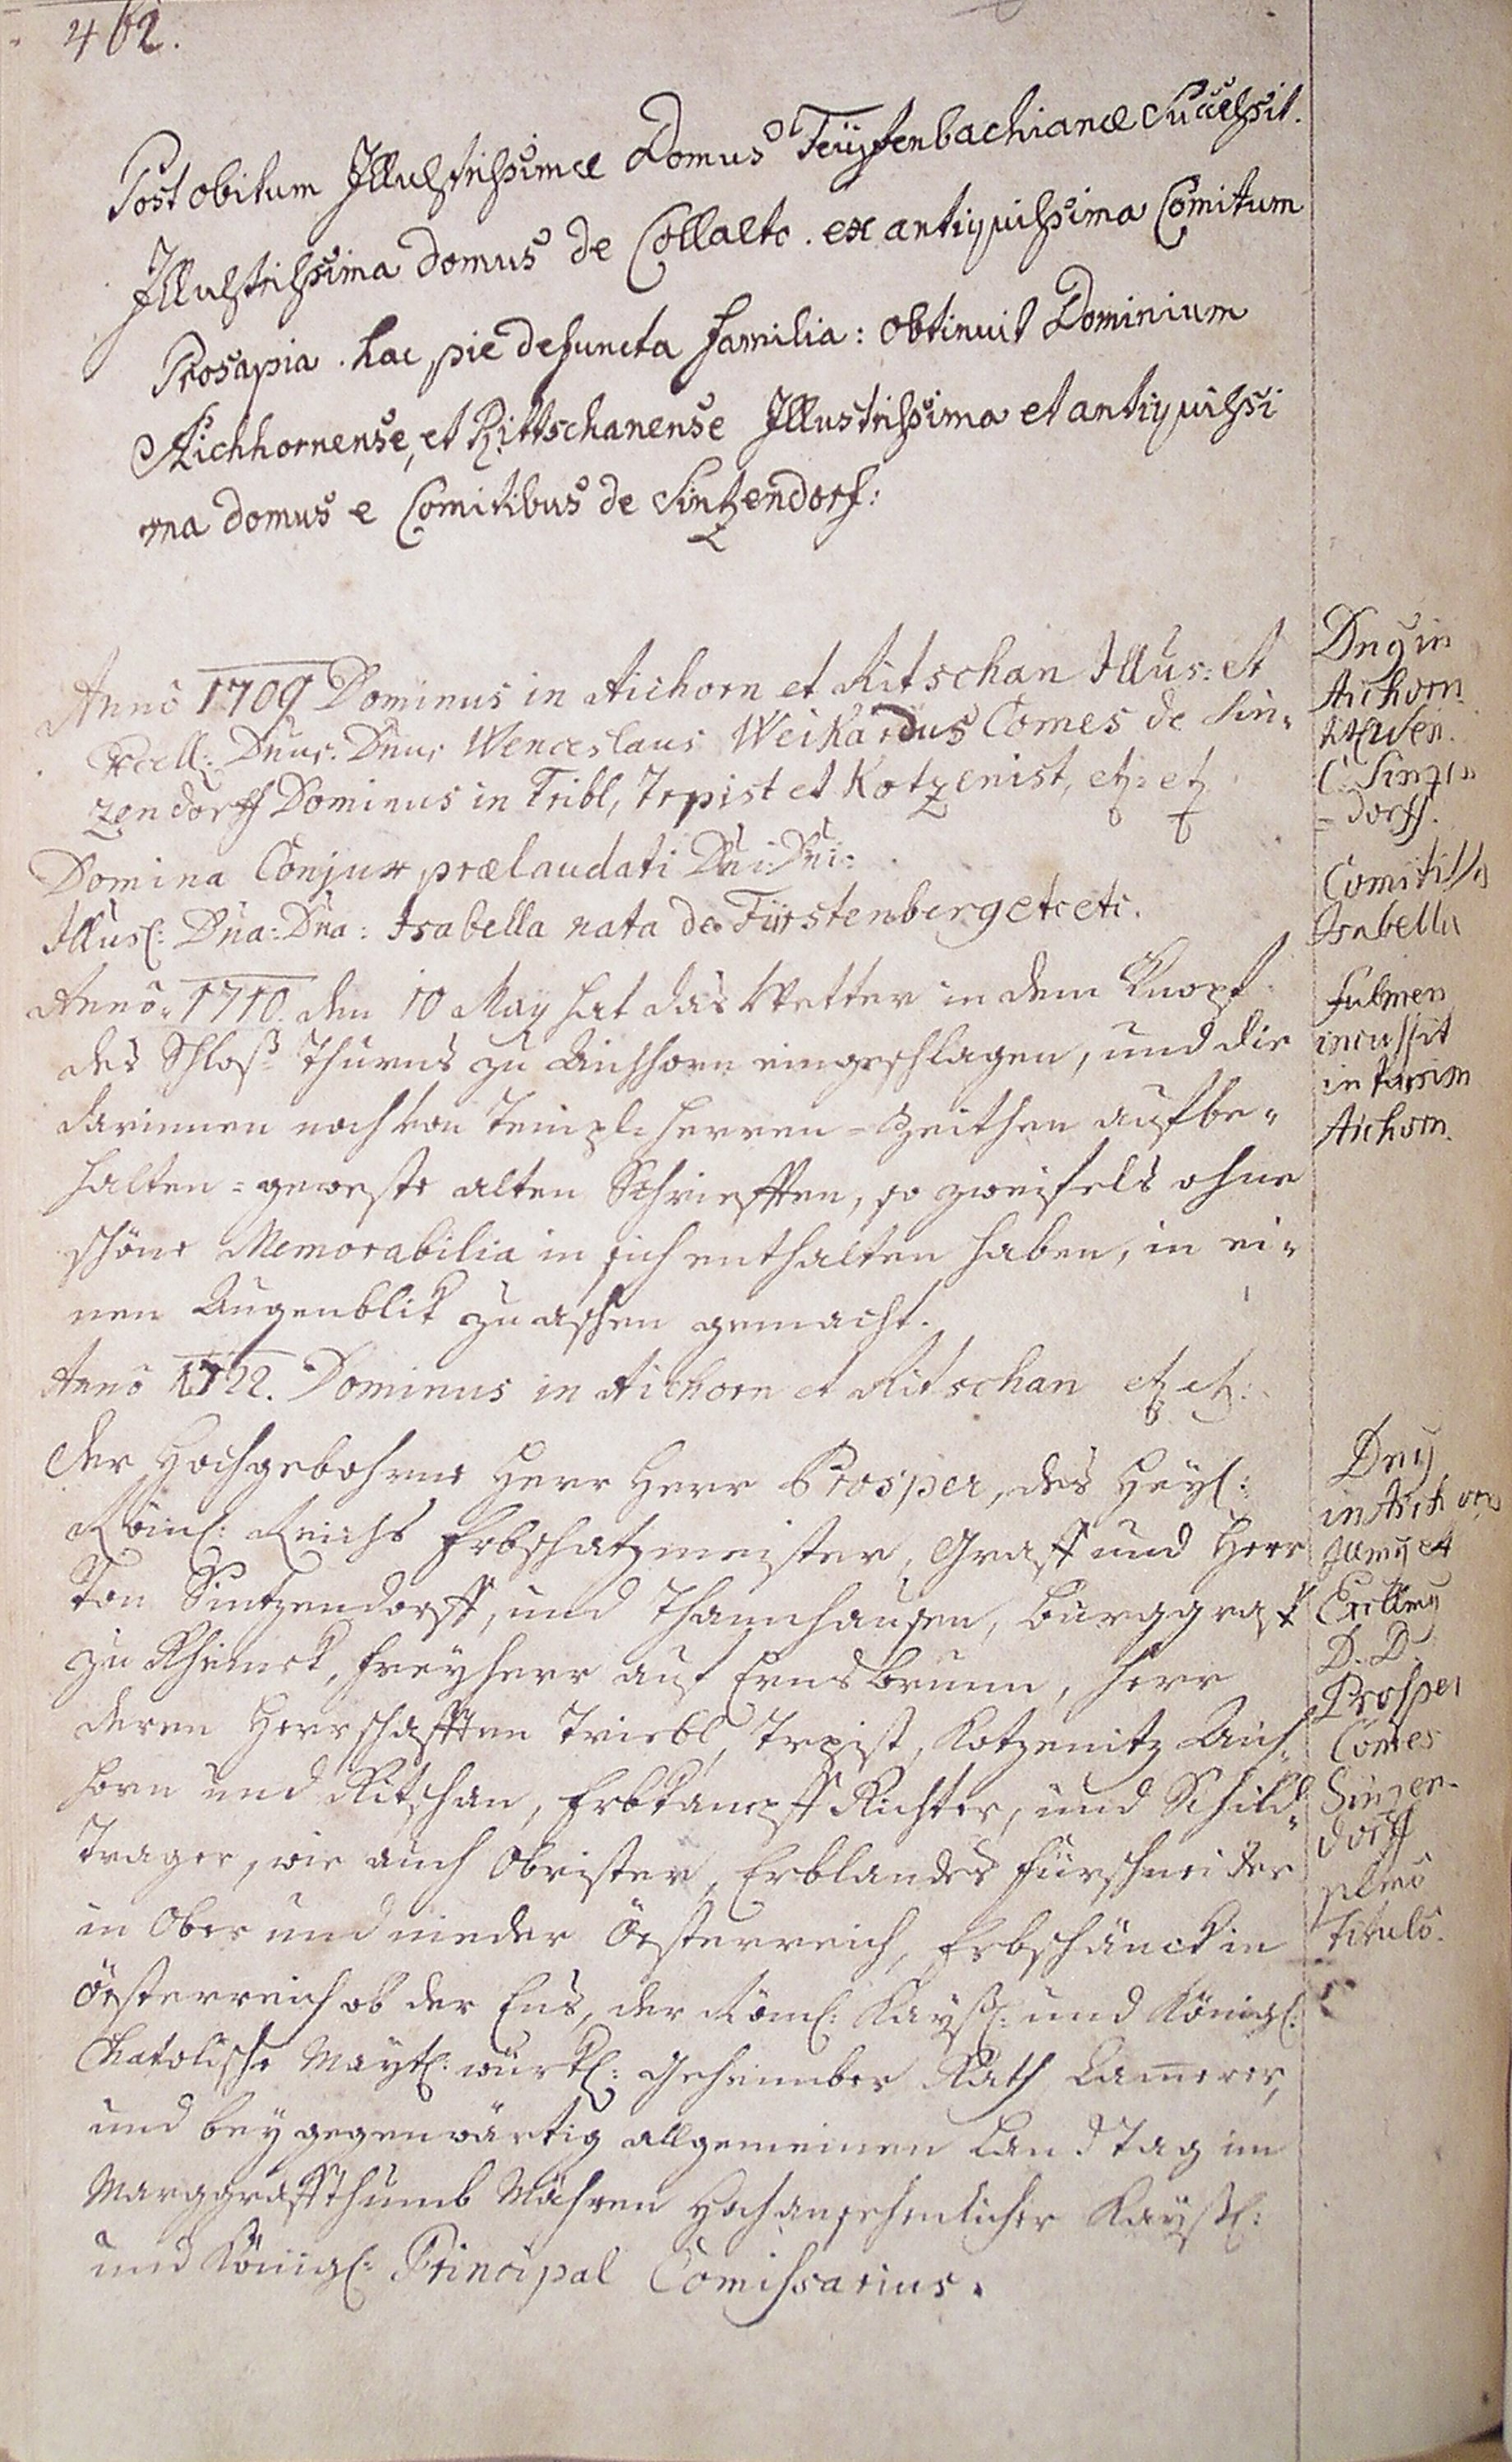 462.
Post obitum Illustrissimæ Domus Teuffenbachianæ Successit.
Illustrissima domus de Collalto. ex antiquissima Comitum
Prosapia. hac pie defuncta familia: obtinuit Dominium
Aichhornense, et Rittschanense Illustrissima et antiquissi
ma domus e Comitibus de Sintzendorf:
Anno 1709 Dominus in Aichorn et Ritschan Illus: et
Excell: Dnus. Dnus Wenceslaus Weikardus Comes de Sin-
zendorff Dominus in Tribl, Trpist et Kotzenist, etz: etz
Domina Conjux prælaudati Dni: Dni:
Illus: Dna: Dna: Isabella nata de Fürstenberg etc etc.
Anno 1710. den 10 May hat das Wetter in dem Knopf
des Schloß Thurns zu Aichhorn eingeschlagen, und die
darinnen noch von Templ-herren-Zeithen aufbe-
halten-geweste alten Schriefften, so zweifels ohne
schöne Memorabilia in sich enthalten haben, in ei-
nen Augenblik zu aschen gemacht.
Anno 1722. Dominus in Aichorn et Ritschan etz etz:
der Hochgebohrne Herr Herr Prosper, des Heyl:
Röml: Reichs Erbschatzmeister, Graff und Herr
von Sintzendorff, und Thannhausen, Burggraff
zu Rheineck, freyherr auf Ernsbrunn, herr
deren Herrschafften Triebl, Trpist, Kotzenitz Aich-
horn und Ritschan, Erbkampff Richter, und Schild-
Trager, wie auch Obrister, Erblandes fürschneider
in Ober und nieder Öesterreich, Erbschänck in
Öesterreich ob der Ens, der Röml: Kaysl: und Königl:
Chatolische Mayt: würkl: geheimber Rath Camerer,
und bey gegenwärtig allgemeinen Land Tag im
Marggraffthumb Mähren Hochansehnlicher Kaysl:
und Königl: Principal Comissarius.
Dny in
Aichorn
C. Sinzen
-dorff.
Comitissa
Isabella
Fulmen
incussit
in turrim
Aichorn.
Dny
in Aichorn
Illmy et
Excellmy
D. D.
Prosper
Comes
Sinzen-
dorff
pleno
titulo.